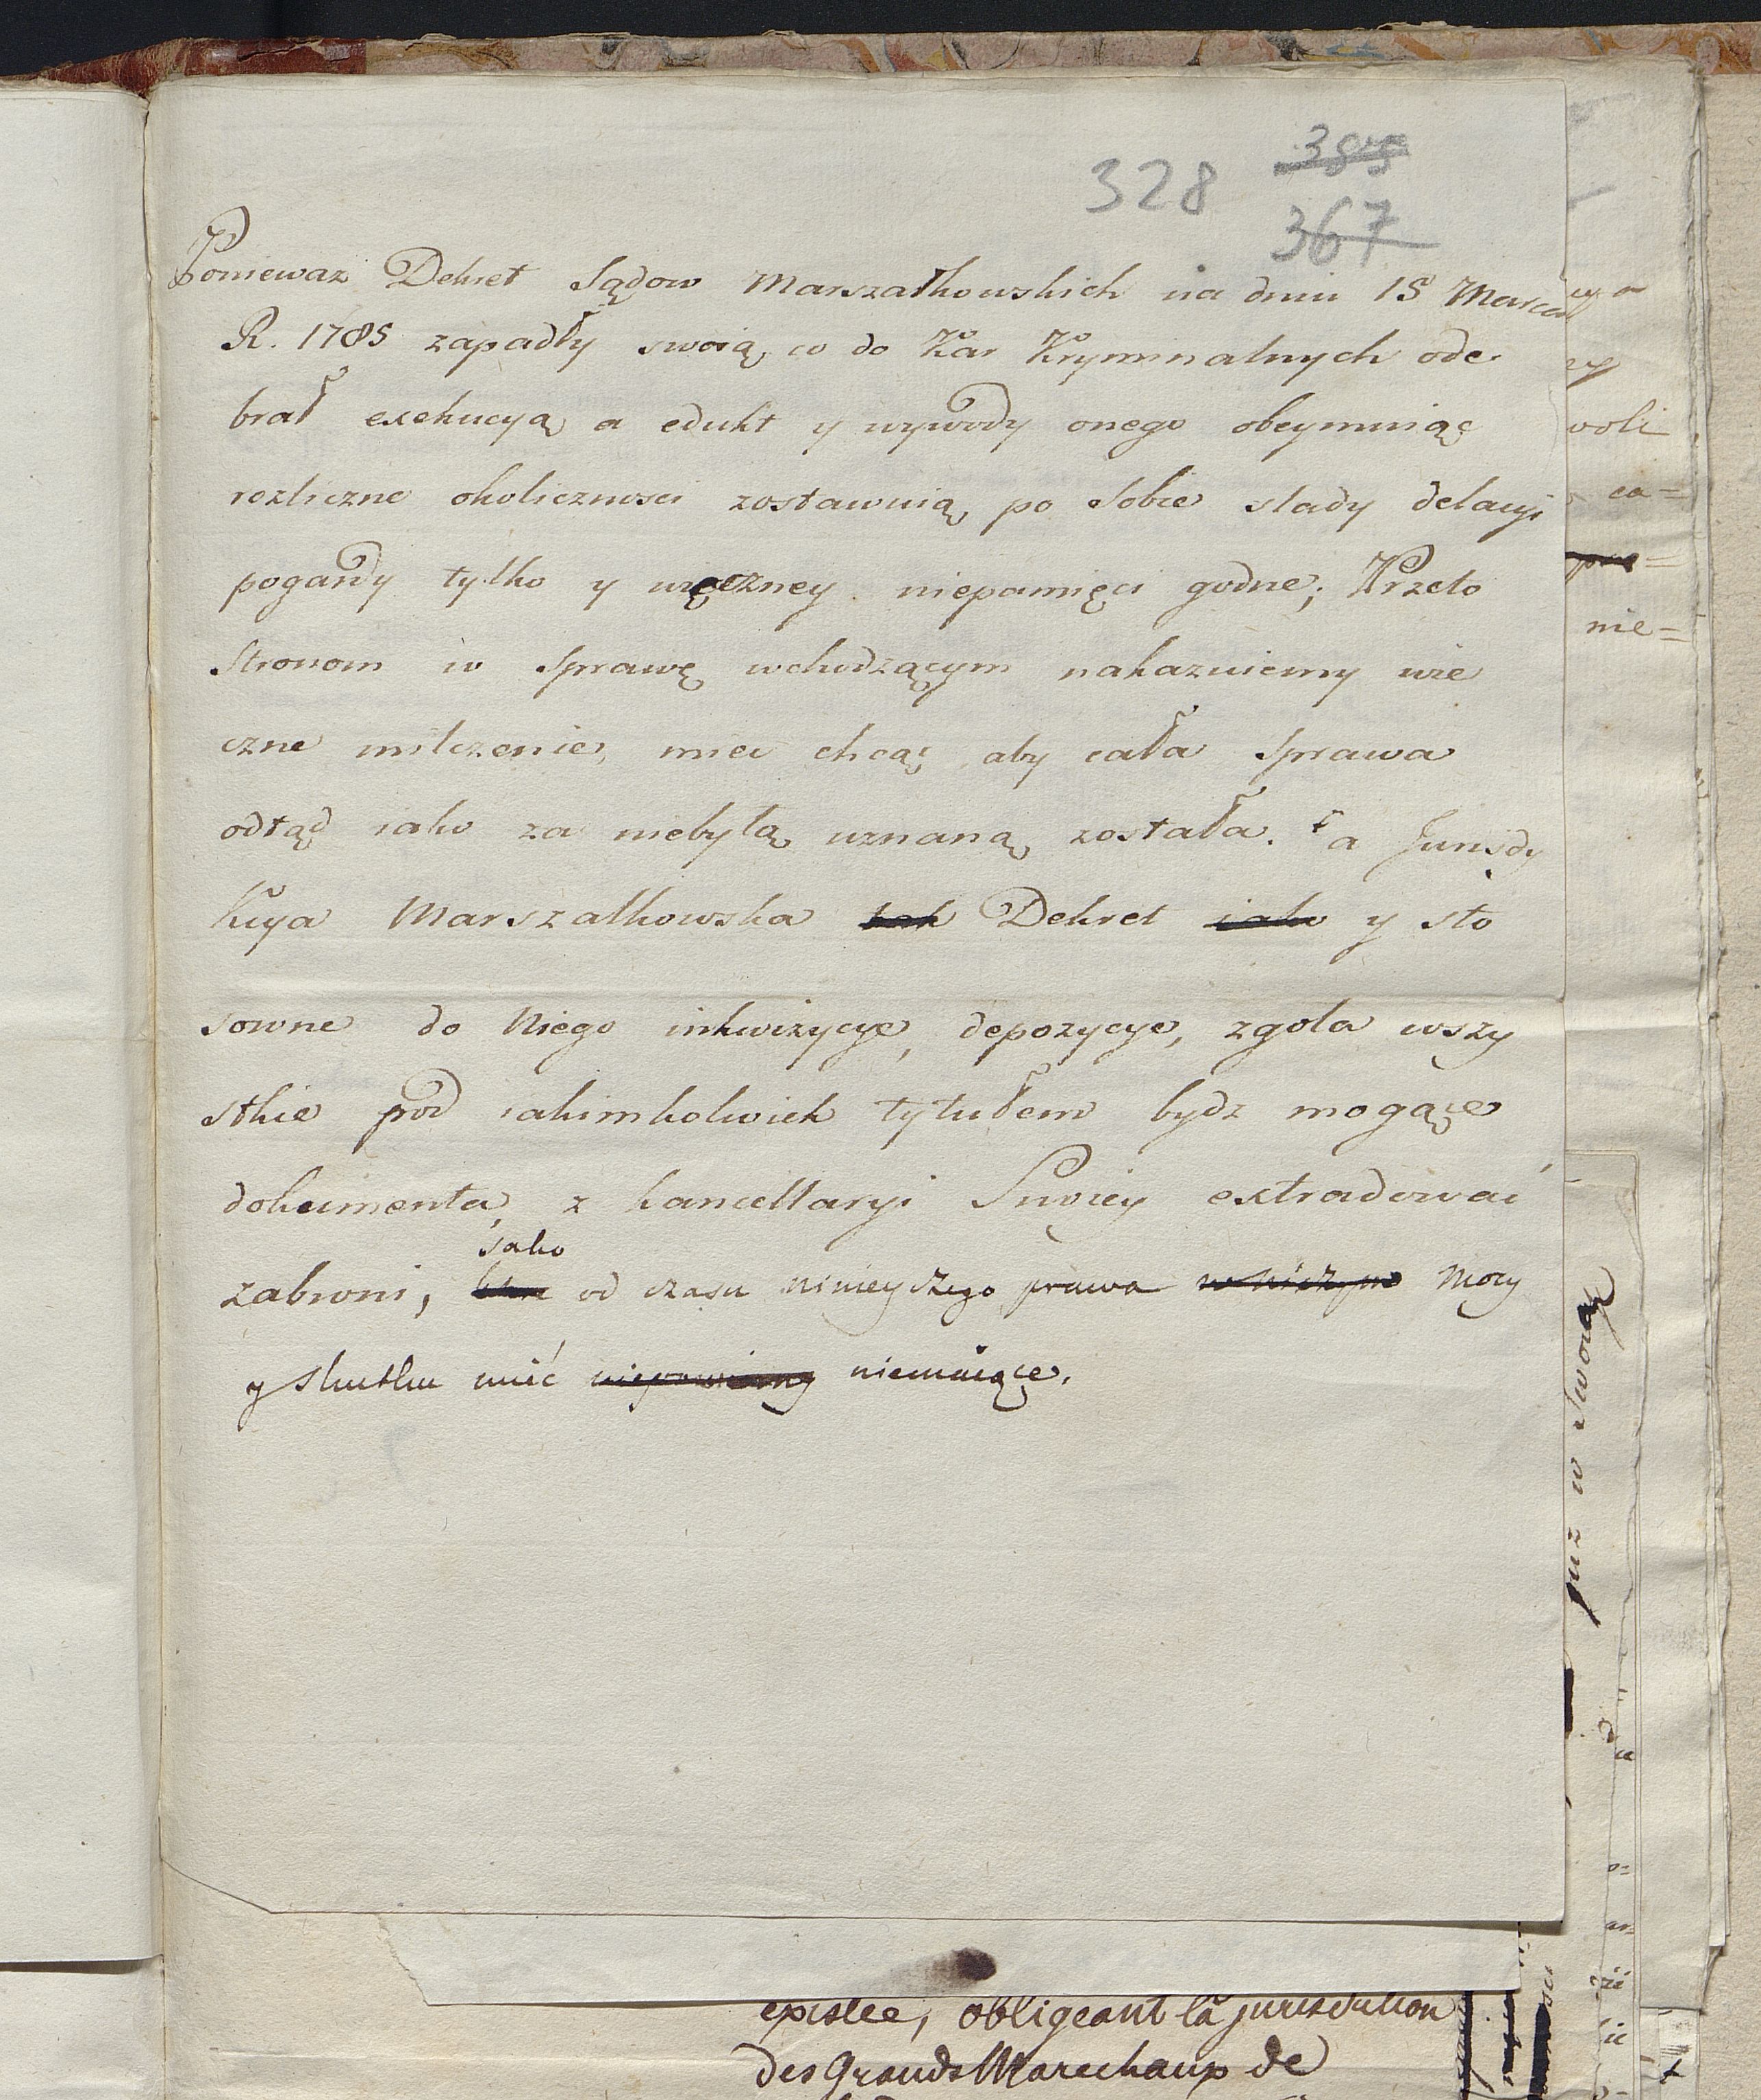 328 385
367
Poniewaz Dekret Sądow Marszałkowskich na dniu 15 Marca
R. 1785 zapadły swoią co do Kar Kryminalnych ode-
brał exekucyą a edukt y wywody onego obeymuiąc
rozliczne okolicznosci zostawuią po Sobie slady delacyi
pogardy tylko y wieczney niepamięci godne; Przeto
Stronom w Sprawę wchodzącym nakazuiemy wie
czne milczenie, miec chcąc aby cała Sprawa
odtąd iako za niebyłą uznaną została. a Jurisdy
kcya Marszalkowska tak Dekret iako y sto
sowne do Niego inkwizycye, depozycye, zgoła wszy
stkie pod iakimkolwiek tytułem bydz mogące
dokumenta, z kancellaryi Swoiey extradować
iako
zabroni, od czasu ninieyszego prawa w niczym Mocy
y skutku mieć niepowinny niemaiące.
wo
zy
woli
ca=
nie=
już w Swoią
a
o=
epistee, obligeant la jurisdiction
des Grands Marechaux de